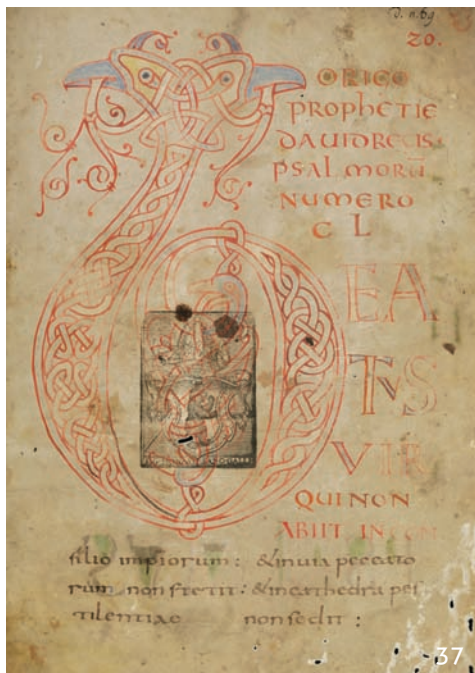 D. n. 69
20.
ORIGO
PROPHETIE
DAUIDREGIS
PSALMORŪ
NUMERO
CL
B
EA
TVS
VIR
QUI NON
ABIIT IN CON
silio impiorum : & inuia peccato
rum non stetit : & incathedra pes
tilentiae non sedit :
37